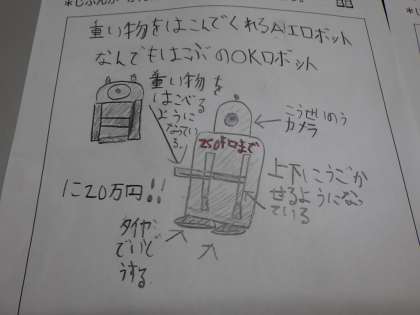 重い物をはこんでくれるAIロボット
なんでもはこぶのOKロボット
重い物を
はこべる
ようにな
っている。
こうせいのう
カメラ
250キロまで
に20万円!!
上下にうごか
せるようになっ
ている
タイヤ
でいど
うする。